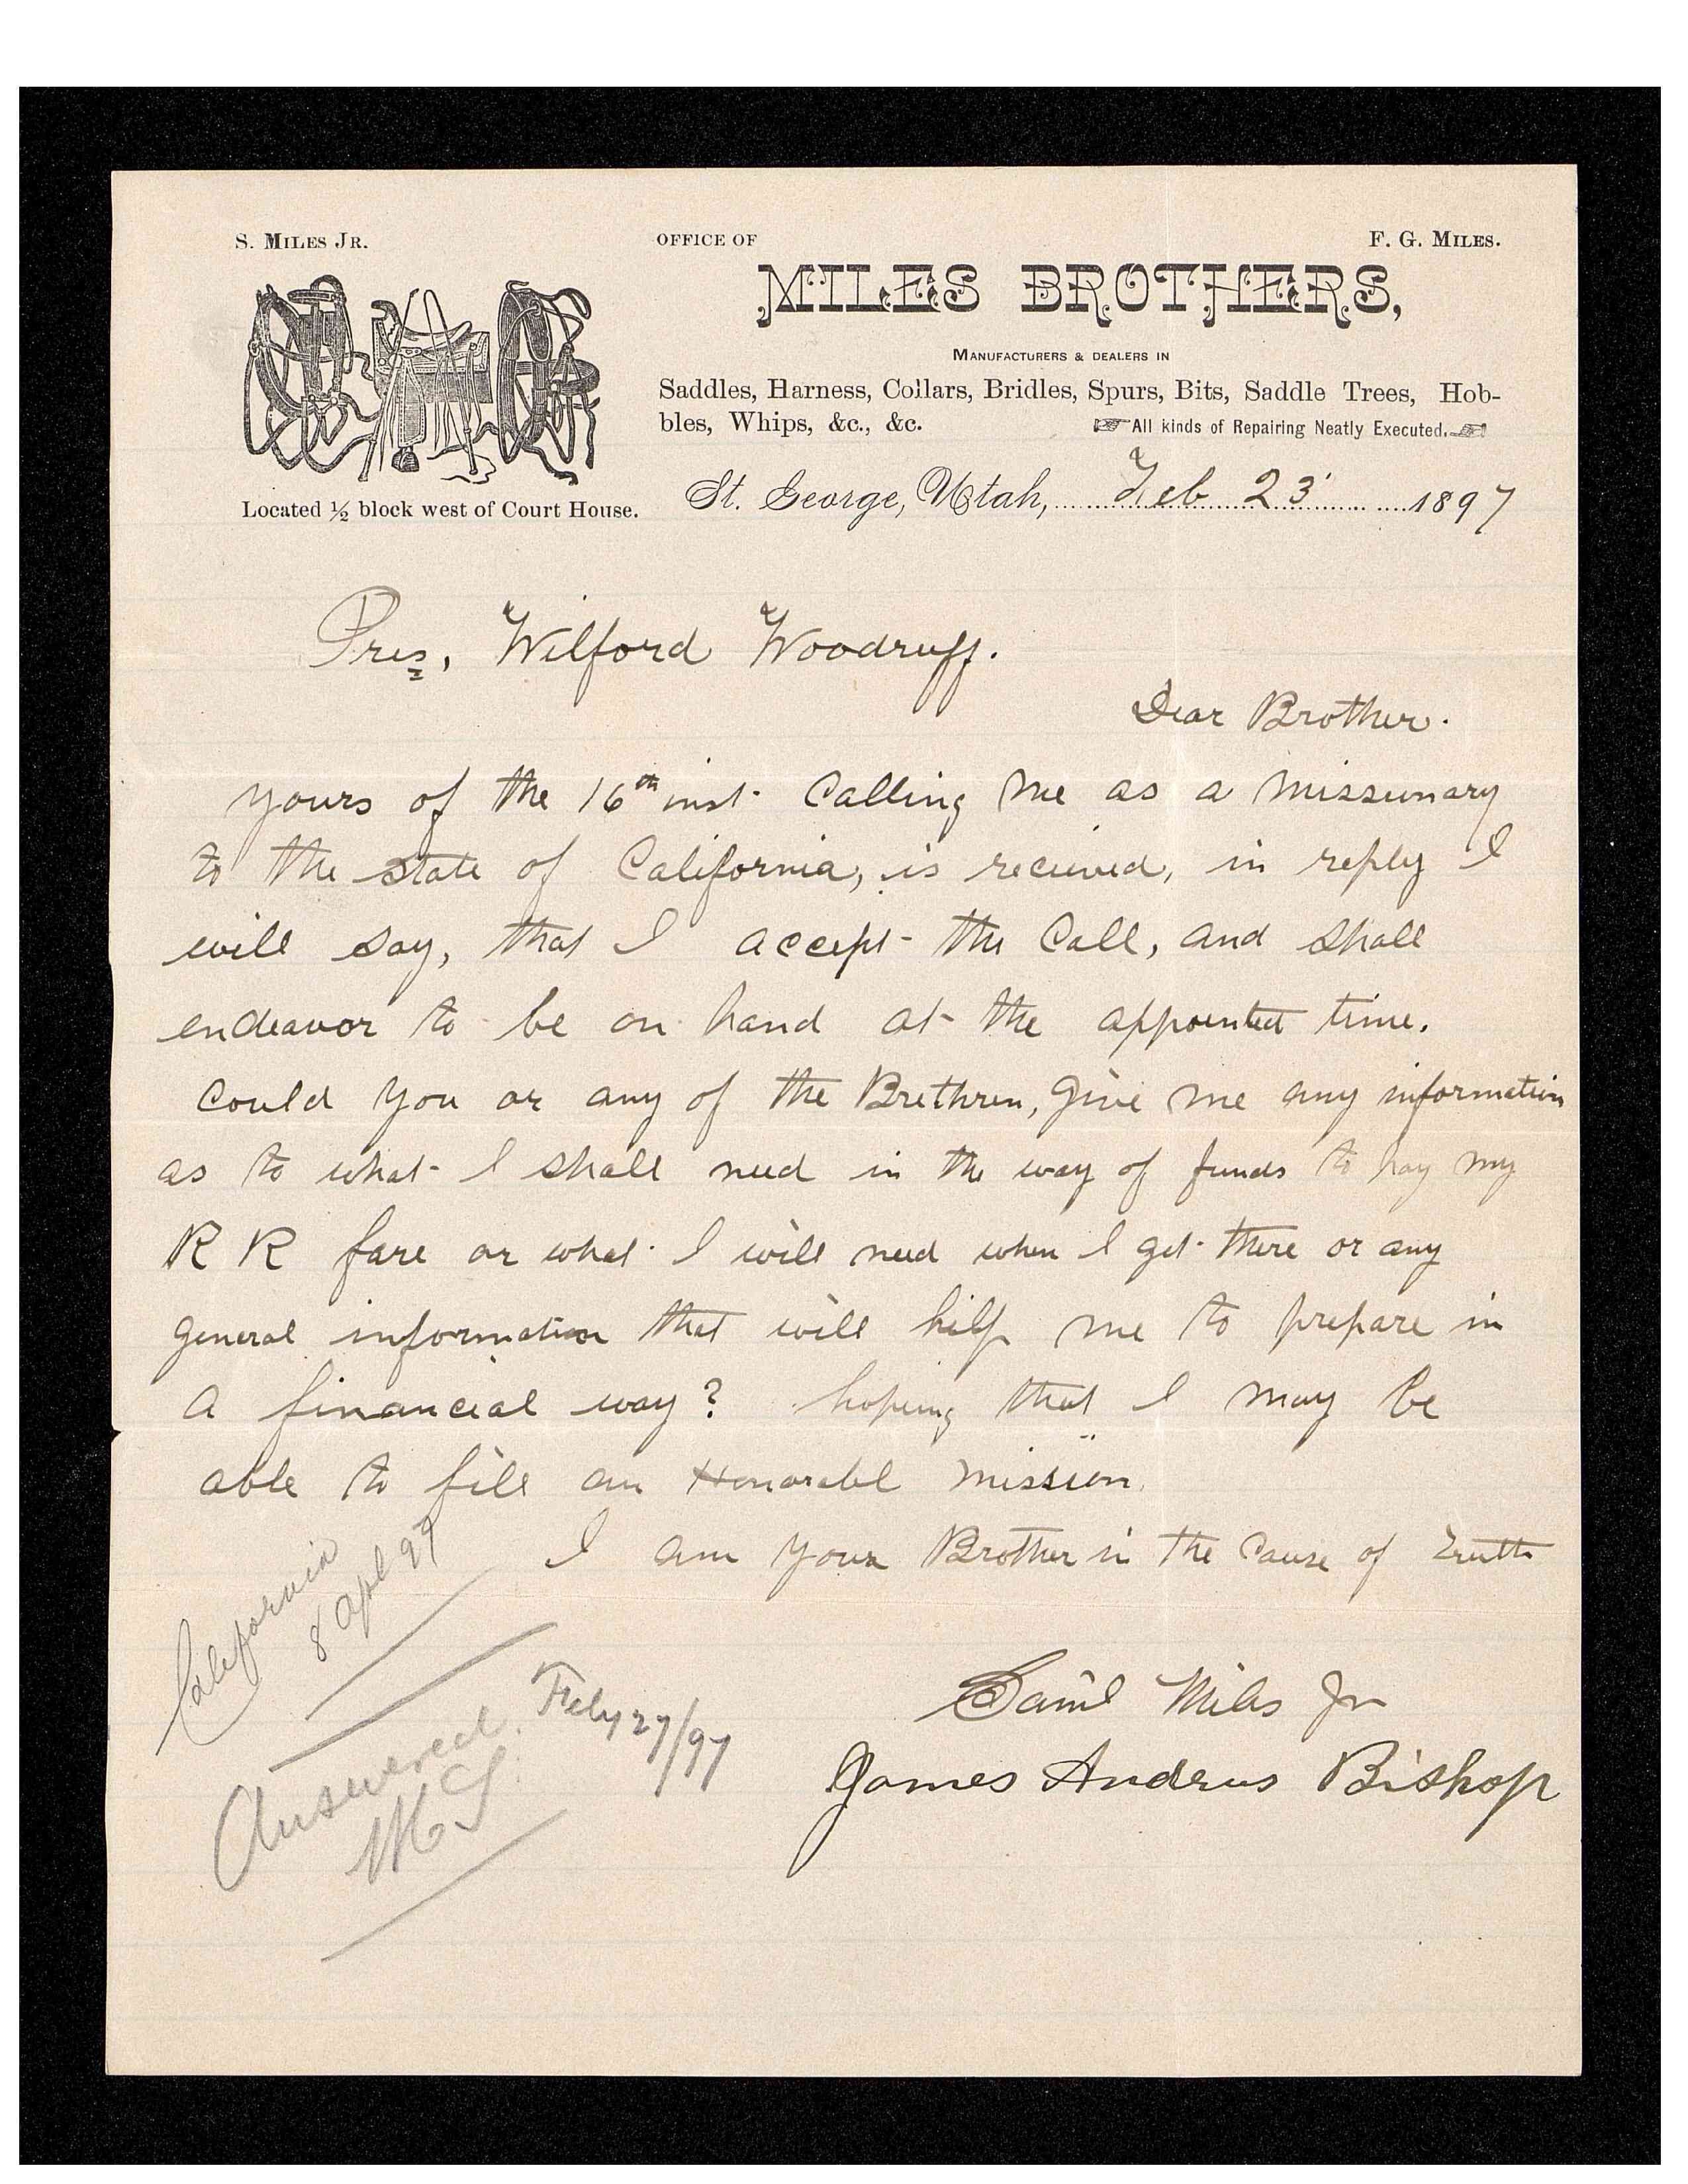 S. MILES JR.
OFFICE OF
F. G. MILES.
MILES BROTHERS,
MANUFACTURERS & DEALERS IN
Saddles, Harness, Collars, Bridles, Spurs, Bits, Saddle Trees, Hob-
bles, Whips, &c., &c.
All kinds of Repairing Neatly Executed.
Located ½ block west of Court House.
St. George, Utah, Feb 23 1897
Pres, Wilford Woodruff.
Dear Brother.
yours of the 16th inst. Calling me as a missionary
to the state of California, is recieved, in reply I
will say, that I accept the Call, and shall
endeavor to be on hand at the appointed time.
Could you or any of the Brethren, give me any information
as to what I shall need in the way of funds to pay my
R R fare or what I will need when I get there or any
general information that will help me to prepare in
a financial way? hoping that I may be
able to fill an Honorabl mission.
I am your Brother in the Cause of Truth
Saml Miles Jr
James Andrus Bishop
California
8 Apl 97
Answered. Feby 27/97